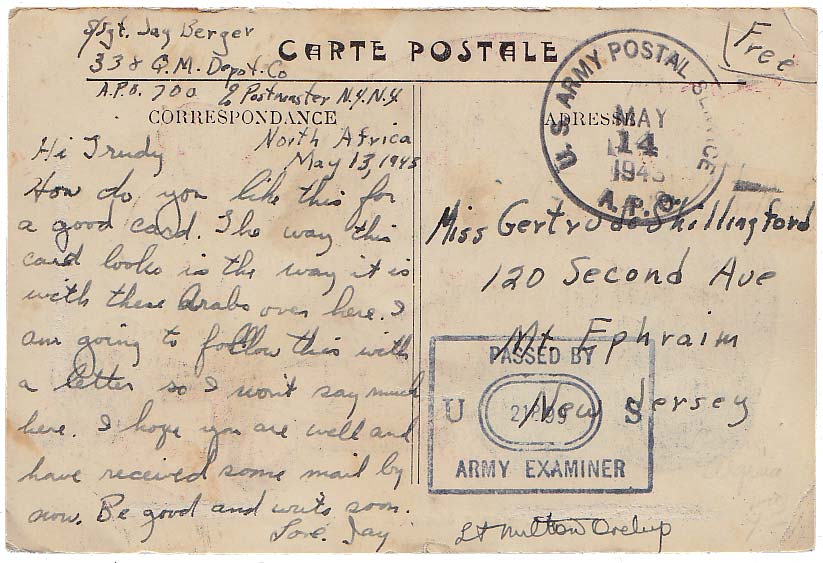 S/Sgt. Jay Berger
338 Q.M. Depot. Co
A.P.O. 700 % Postmaster N.Y.N.Y.
CARTE POSTALE
Free
CORRESPONDANCE
North Africa
May 13, 1945
Hi Trudy
How do you like this for
a good card. The way this
card looks is the way it is
with these Arabs over here. I
am going to follow this with
a letter so I won't say much
here. I hope you are well and
have received some mail by
now. Be good and write soon.
Love. Jay
ADRESSE
U.S. ARMY POSTAL SERVICE
MAY
14
1945
A.P.O.
Miss Gertrude Shillingford
120 Second Ave
Mt Ephraim
New Jersey
PASSED BY
U S
ARMY EXAMINER
Lt Milton